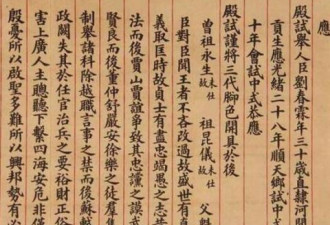 應
殿試舉人臣劉春霖年三十歲直隸河間
貢生應光緒二十八年順天鄉試中式
十年會試中式恭應
殿試謹將三代腳色開具於後
曾祖永生未仕 祖昆儀未仕 父魁
臣對臣聞王者不吝改過故盛世有直
義取匡時故貞士有盡忠竭愚之志
法而後賈山賈誼爭致其忠讜之謨
賢良而後董仲舒嚴安徐樂之徒羣集
制舉諸科除越職言事之禁而後蘇軾
政闕失其於任官治兵之要裕財正俗
害上廣人主聰聽下繫四海安危非僅
殷憂所以啟聖多難所以興邦勢有必